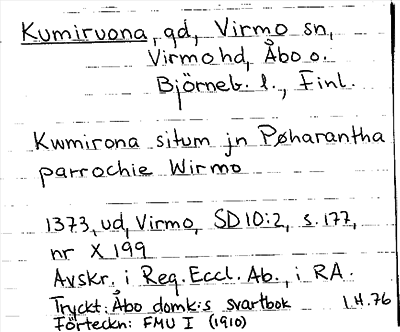 Kumiruona, gd, Virmo sn,
Virmohd, Åbo o.
Björneb. l., Finl.
Kwmirona situm jn Pøharantha
parrochie Wirmo
1373, ud, Virmo, SD 10:2, s. 177,
nr X 199
Avskr. i Reg. Eccl. Ab., i RA.
Tryckt: Åbo domk:s svartbok
I.H. 76
Förteckn: FMU I (1910)